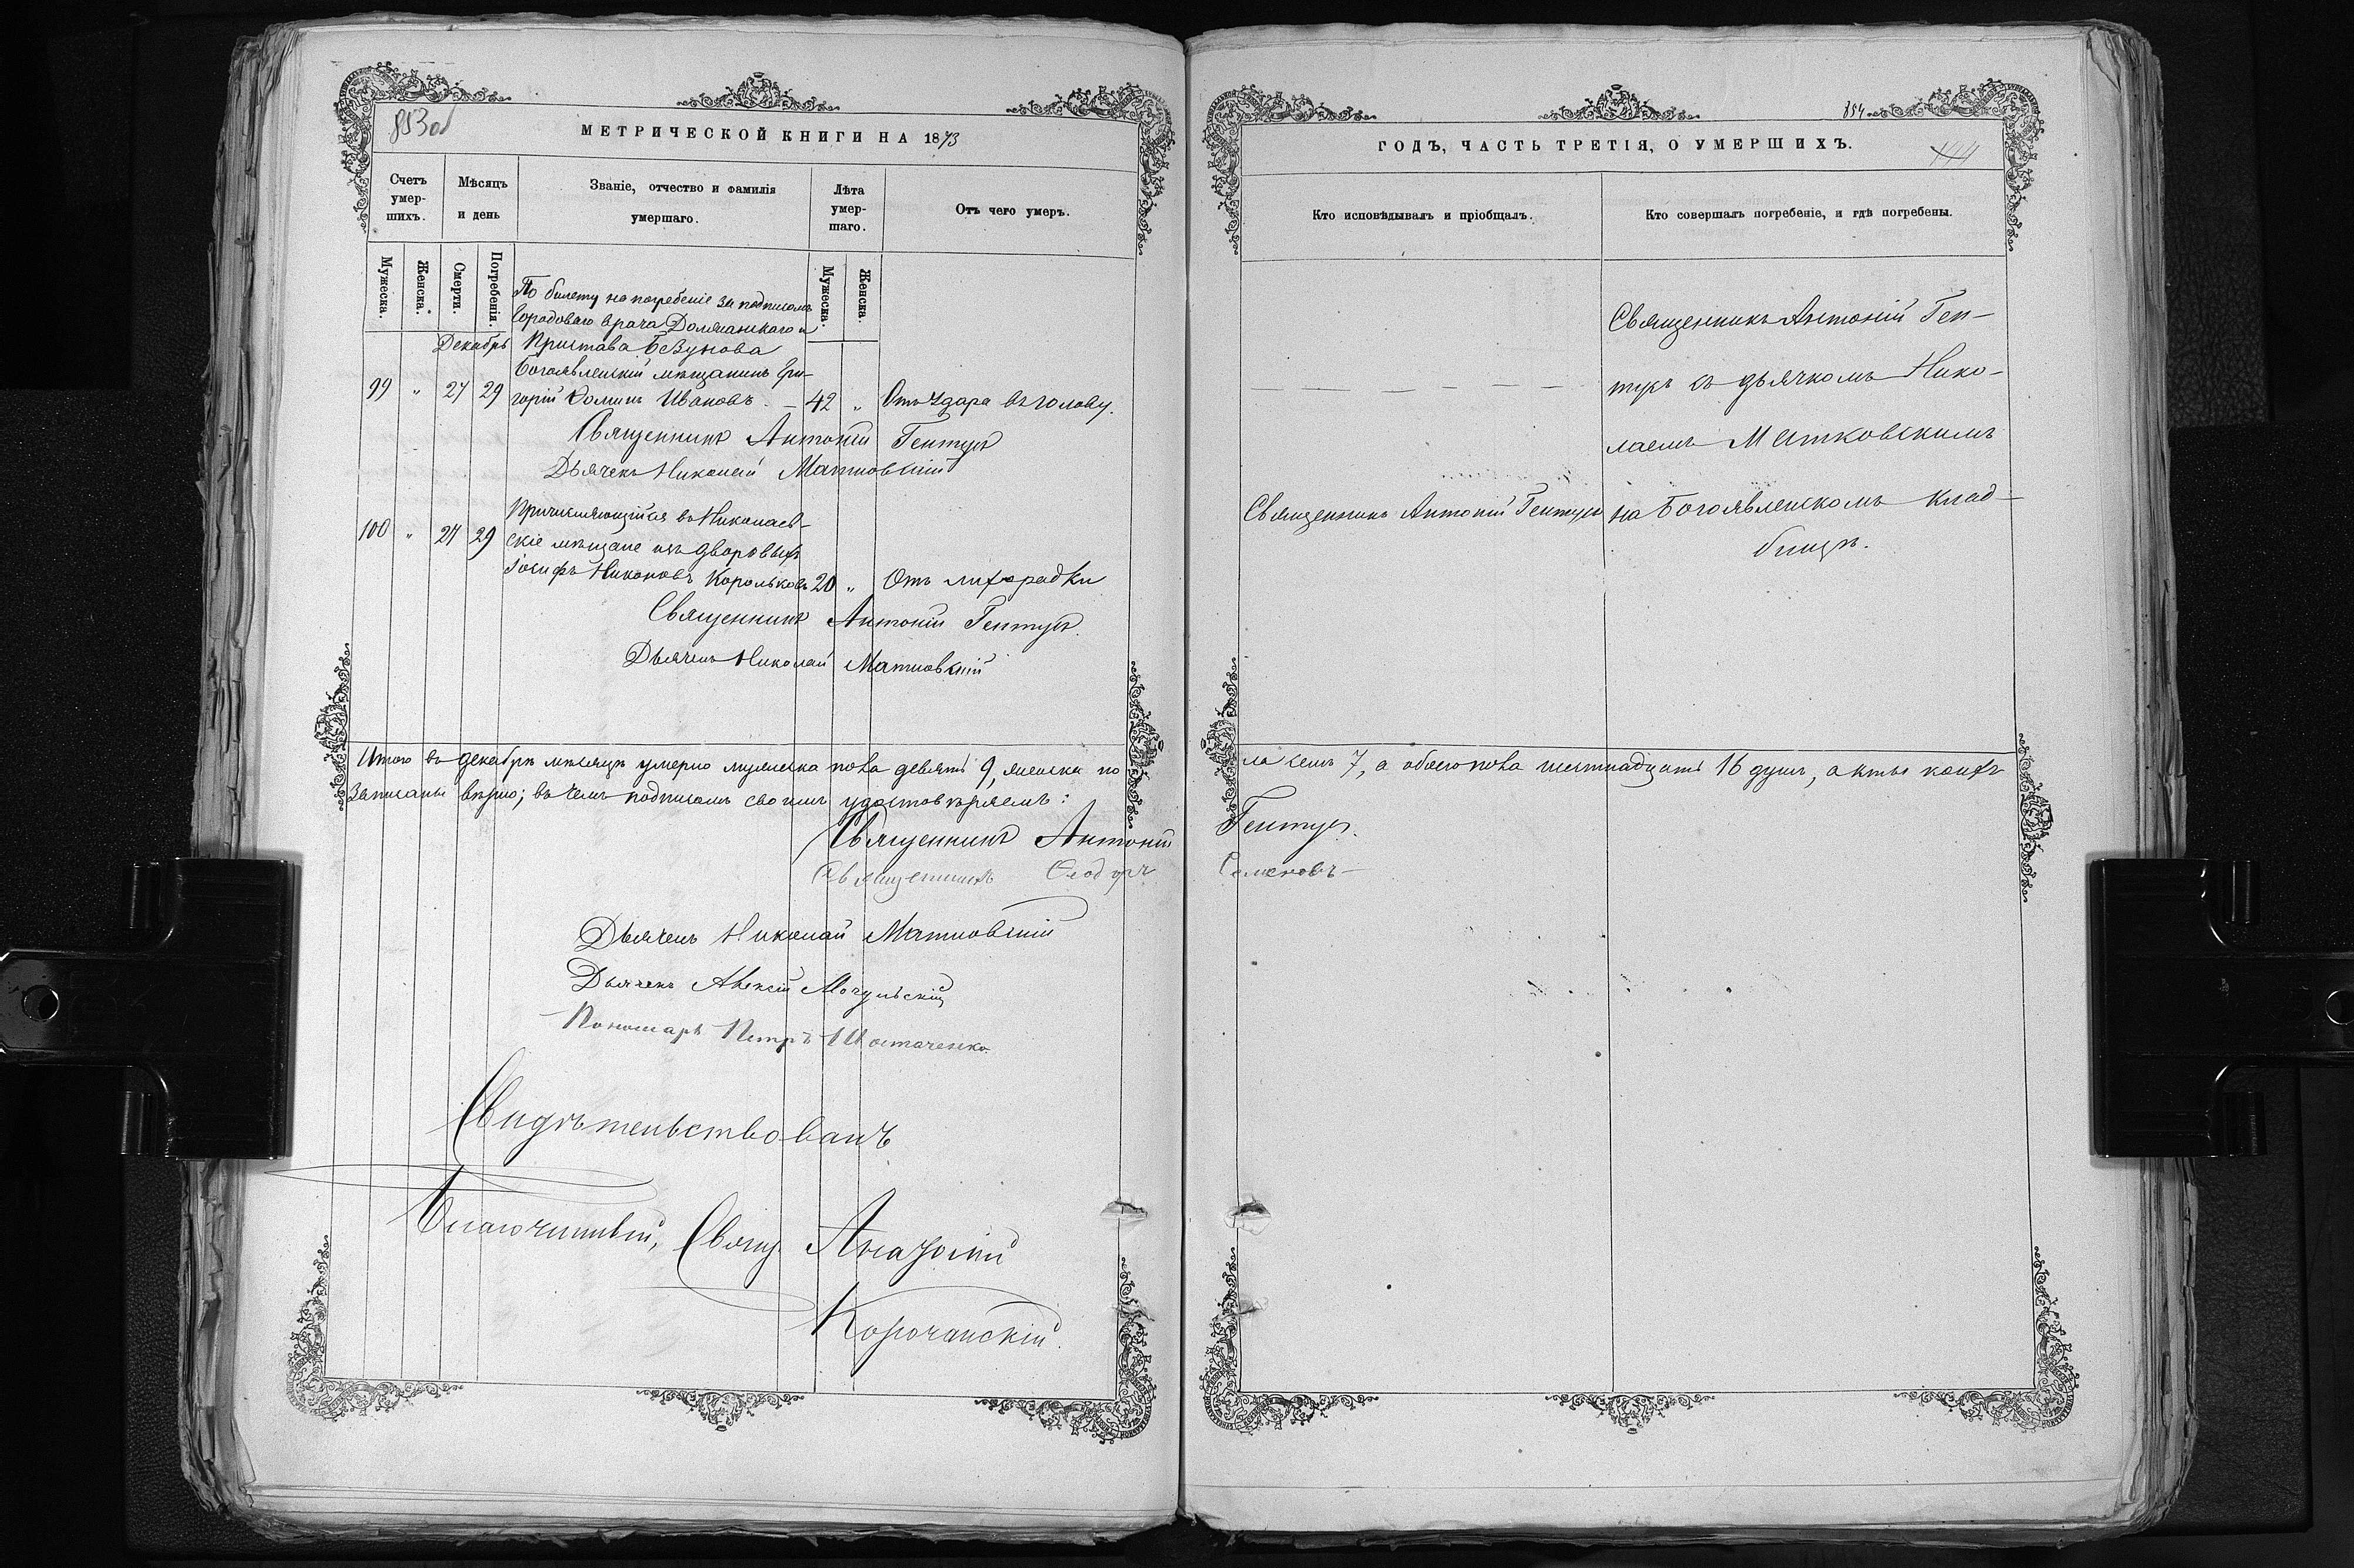 853об
МЕТРИЧЕСКОЙ КНИГИ НА 1873
Счетъ умер-шихъ.
Мѣсяцъ и день
Званіе, отчество и фамилія умершаго.
Лѣта умер-шаго.
Отъ чего умеръ.
Мужеска.
Женска.
Смерти.
Погребенія.
Мужеска.
Женска.
По билету на погребеніе за подписомъ
Городоваго врача Долячанскаго и
Декабрь Пристава Бѣзунова
Богоявленскій мѣщанинъ Гри-
99 " 27 29 горій Фоминъ Ивановъ. — 42 " Отъ удара въ голову.
Священникъ Антоній Гентукъ
Дьячекъ Николай Матковскій
Причисляющійся въ Николаев-
100 " 27 29 скіе мѣщане изъ дворовыхъ
Іосифъ Никоновъ Корольковъ 20 " Отъ лихорадки
Священникъ Антоній Гентукъ.
Дьячекъ Николай Матковскій
Итого въ декабрѣ мѣсяцѣ умерло мужеска пола девять 9, женска по
Записаны вѣрно; въ чемъ подписомъ своимъ удостовѣряемъ:
Священникъ Антоній
Священникъ Ѳеодоръ
Дьячекъ Николай Матковскій
Дьячекъ Алексій Мочульскій
Пономарь Петръ Шостаченко
Свидѣтельствовалъ
Благочинный, Свящ. Анатолій
Корочанскій.
854
ГОДЪ, ЧАСТЬ ТРЕТІЯ, О УМЕРШИХЪ.
144
Кто исповѣдывалъ и пріобщалъ.
Кто совершалъ погребеніе, и гдѣ погребены.
Священникъ Антоній Ген-
— — — — — — тукъ съ дьячкомъ Нико-
лаемъ Матковскимъ
Священникъ Антоній Гентукъ на Богоявленскомъ клад-
бищѣ.
ла семь 7, а обоего пола шестнадцать 16 душъ, акты коихъ
Гентукъ.
Семеновъ